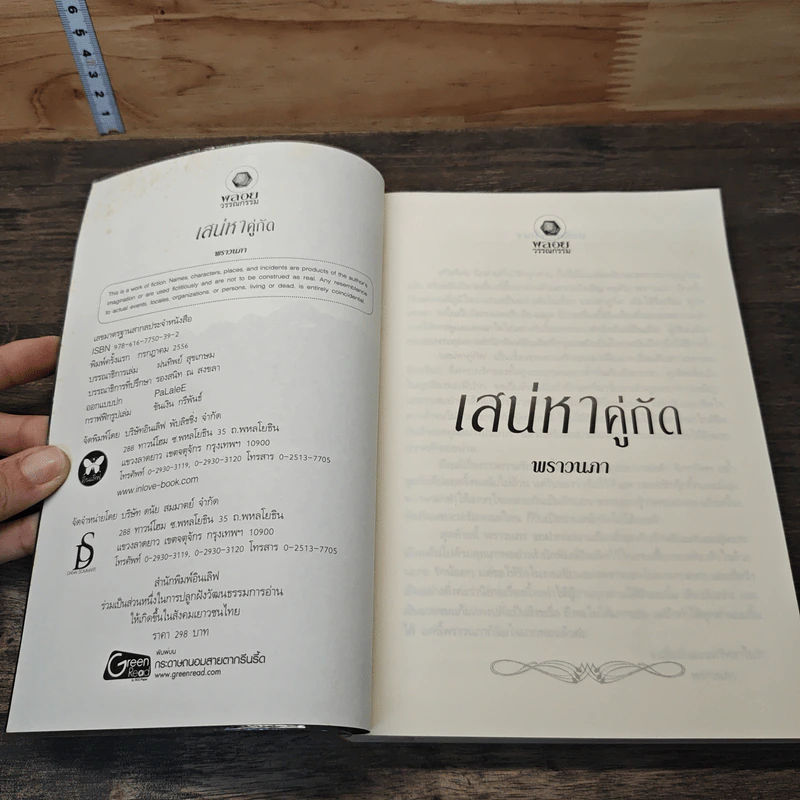 6
5
4
3
2
1
พลอย
วรรณกรรม
เสน่หาคู่กัด
พราวนภา
This is a work of fiction. Names, characters, places, and incidents are products of the author's
imagination or are used fictitiously and are not to be construed as real. Any resemblance
to actual events, locales, organizations, or persons, living or dead, is entirely coincidental.
เลขมาตรฐานสากลประจำหนังสือ
ISBN 978-616-7750-39-2
พิมพ์ครั้งแรก กรกฎาคม 2556
บรรณาธิการเล่ม ฝนทิพย์ สุขเกษม
บรรณาธิการที่ปรึกษา รองสนิท ณ สงขลา
ออกแบบปก PaLaleE
กราฟฟิกรูปเล่ม ขันเงิน ทรีพันธ์
จัดพิมพ์โดย บริษัทอินเลิฟ พับลิชชิ่ง จำกัด
288 ทาวน์โฮม ซ.พหลโยธิน 35 ถ.พหลโยธิน
แขวงลาดยาว เขตจตุจักร กรุงเทพฯ 10900
โทรศัพท์ 0-2930-3119, 0-2930-3120 โทรสาร 0-2513-7705
www.inlove-book.com
จัดจำหน่ายโดย บริษัท ดนัย สมมาตย์ จำกัด
288 ทาวน์โฮม ซ.พหลโยธิน 35 ถ.พหลโยธิน
แขวงลาดยาว เขตจตุจักร กรุงเทพฯ 10900
โทรศัพท์ 0-2930-3119, 0-2930-3120 โทรสาร 0-2513-7705
สำนักพิมพ์อินเลิฟ
ร่วมเป็นส่วนหนึ่งในการปลูกฝังวัฒนธรรมการอ่าน
ให้เกิดขึ้นในสังคมเยาวชนไทย
ราคา 298 บาท
Green
Read
พิมพ์บน
กระดาษถนอมสายตากรีนรี้ด
www.greenread.com
พลอย
วรรณกรรม
เสน่หาคู่กัด
พราวนภา